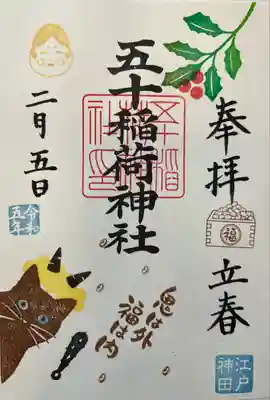 奉拝
立春
福
江戸
神田
五十稲荷神社
五十稲荷
社印
鬼は外
福は内
二月五日
令和
五年